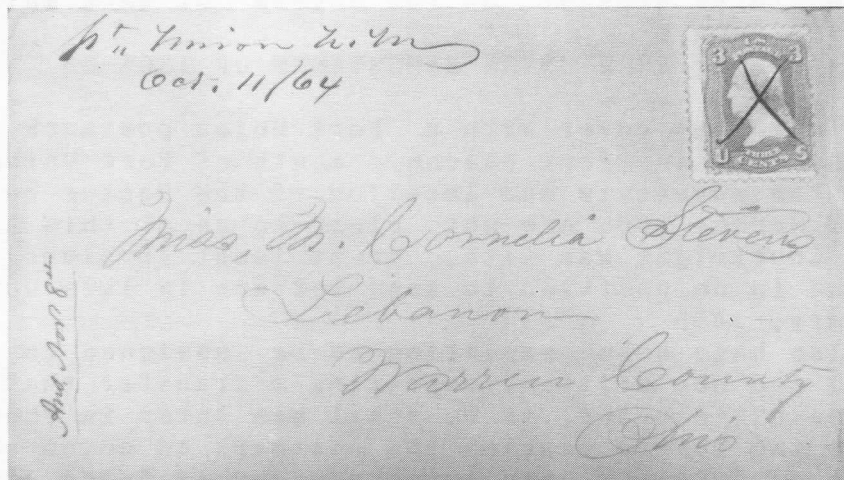 Ft. Union N.M.
Oct. 11/64
3 3
U S
CENTS
Miss, M. Cornelia Stevens
Lebanon
Warren County
Ohio
And Nov. 8th